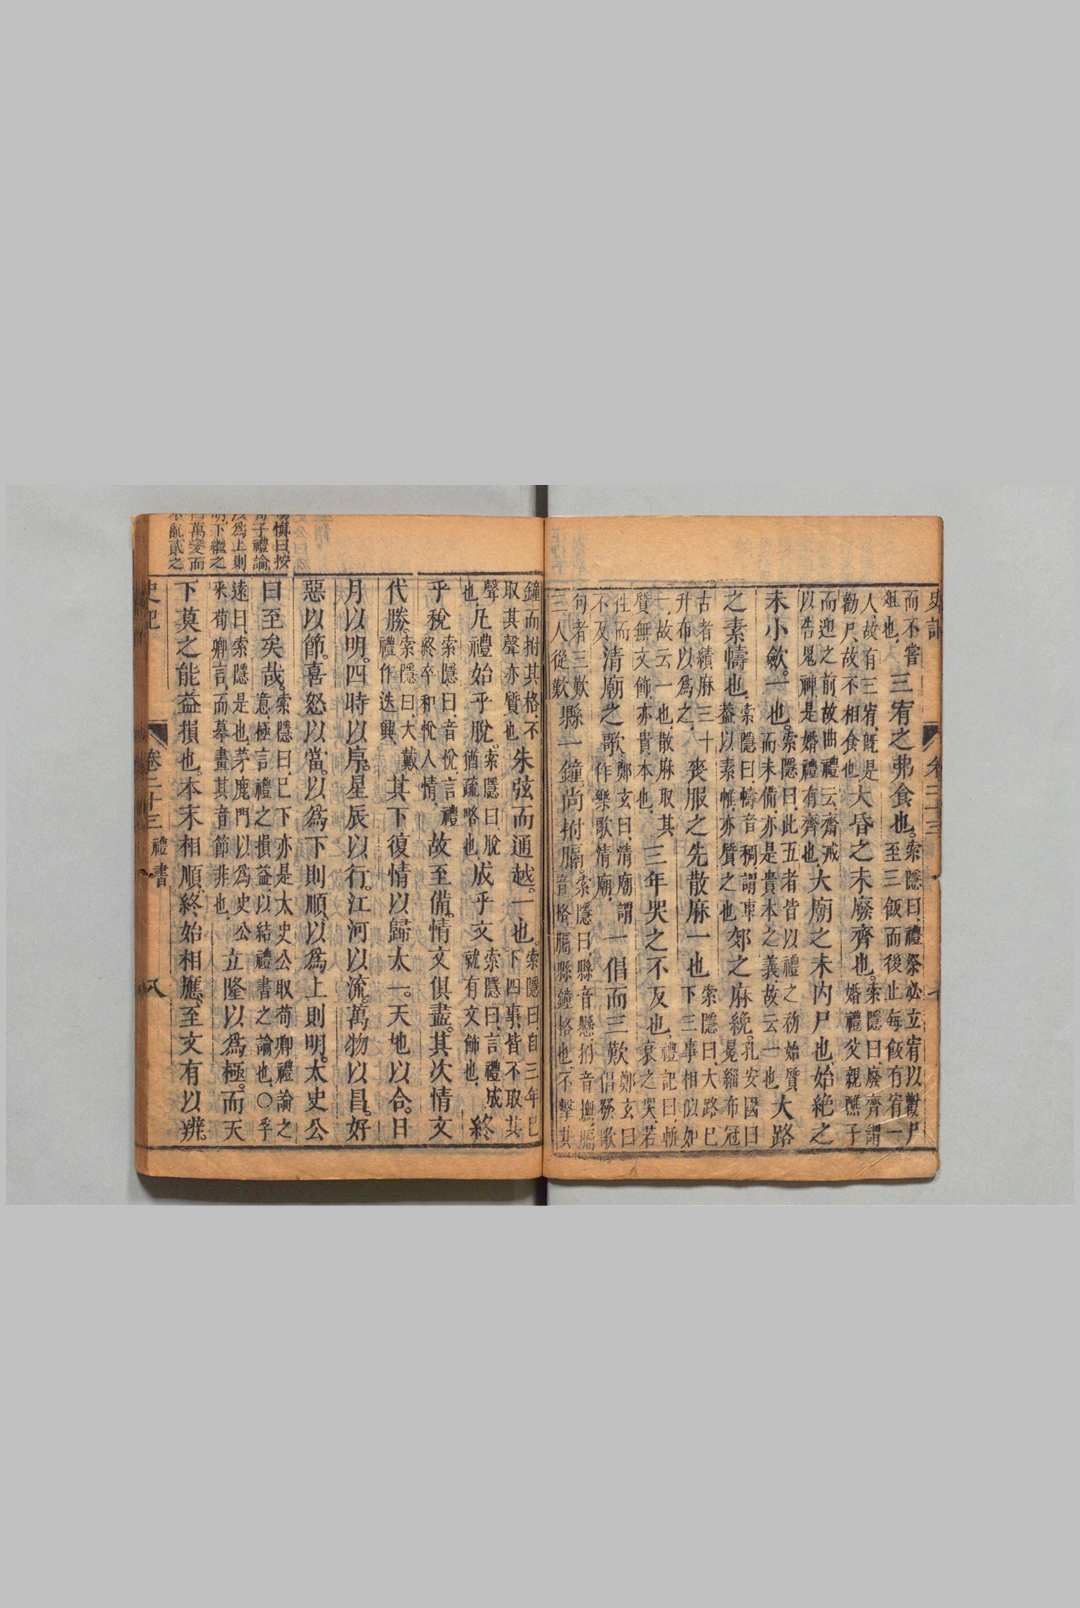 史記 卷二十三
而不嘗俎也三宥之弗食也索隱曰禮祭必立宥以勸尸至三飯而後止每飯有宥一
人故有三宥既是勸尸故不相食也大昏之未廢齊也索隱曰廢齊謂婚禮父親醮子
而迎之前故曲禮云齋戒以告鬼神是婚禮有齊也大廟之未內尸也始絶之
未小歛一也索隱曰此五者皆以禮之初始質而未備亦是貴本之義故云一也大路
之素幬也索隱曰幬音稠謂車蓋以素帷亦質之也郊之麻絻孔安國曰冕緇布冠
古者績麻三十升布以爲之喪服之先散麻一也索隱曰大路巳下三事相似如
一故云一也散麻取其質無文飾亦貴本也三年哭之不反也禮記曰斬衰之哭若
往而不反清廟之歌鄭玄曰清廟謂作樂歌清廟一倡而三歎鄭玄曰倡發歌
句者三歎三人從歎縣一鐘尚拊膈索隱曰縣音懸拊音撫膈音格膈縣鐘格也不擊其
鐘而拊其格不取其聲亦質也朱弦而通越一也索隱曰自三年巳下四事皆不取其
聲也凡禮始乎脫索隱曰脫猶疏略也成乎文索隱曰言禮成就有文飾也終
乎稅索隱曰音悅言禮終卒和悅人情故至備情文俱盡其次情文
代勝索隱曰大戴禮作迭興其下復情以歸太一天地以合日
月以明四時以序星辰以行江河以流萬物以昌好
惡以節喜怒以當以爲下則順以爲上則明太史公
曰至矣哉索隱曰巳下亦是太史公取荀卿禮論之意極言禮之損益以結禮書之論也〇孚
遠曰索隱是也茅鹿門以爲史公采荀卿言而摹畫其音節非也立隆以爲極而天
下莫之能益損也本末相順終始相應至文有以辨
史記 卷二十三 禮書 八
愼曰按
荀子禮論
爲上則
明下繼之
萬變而
不亂貳之